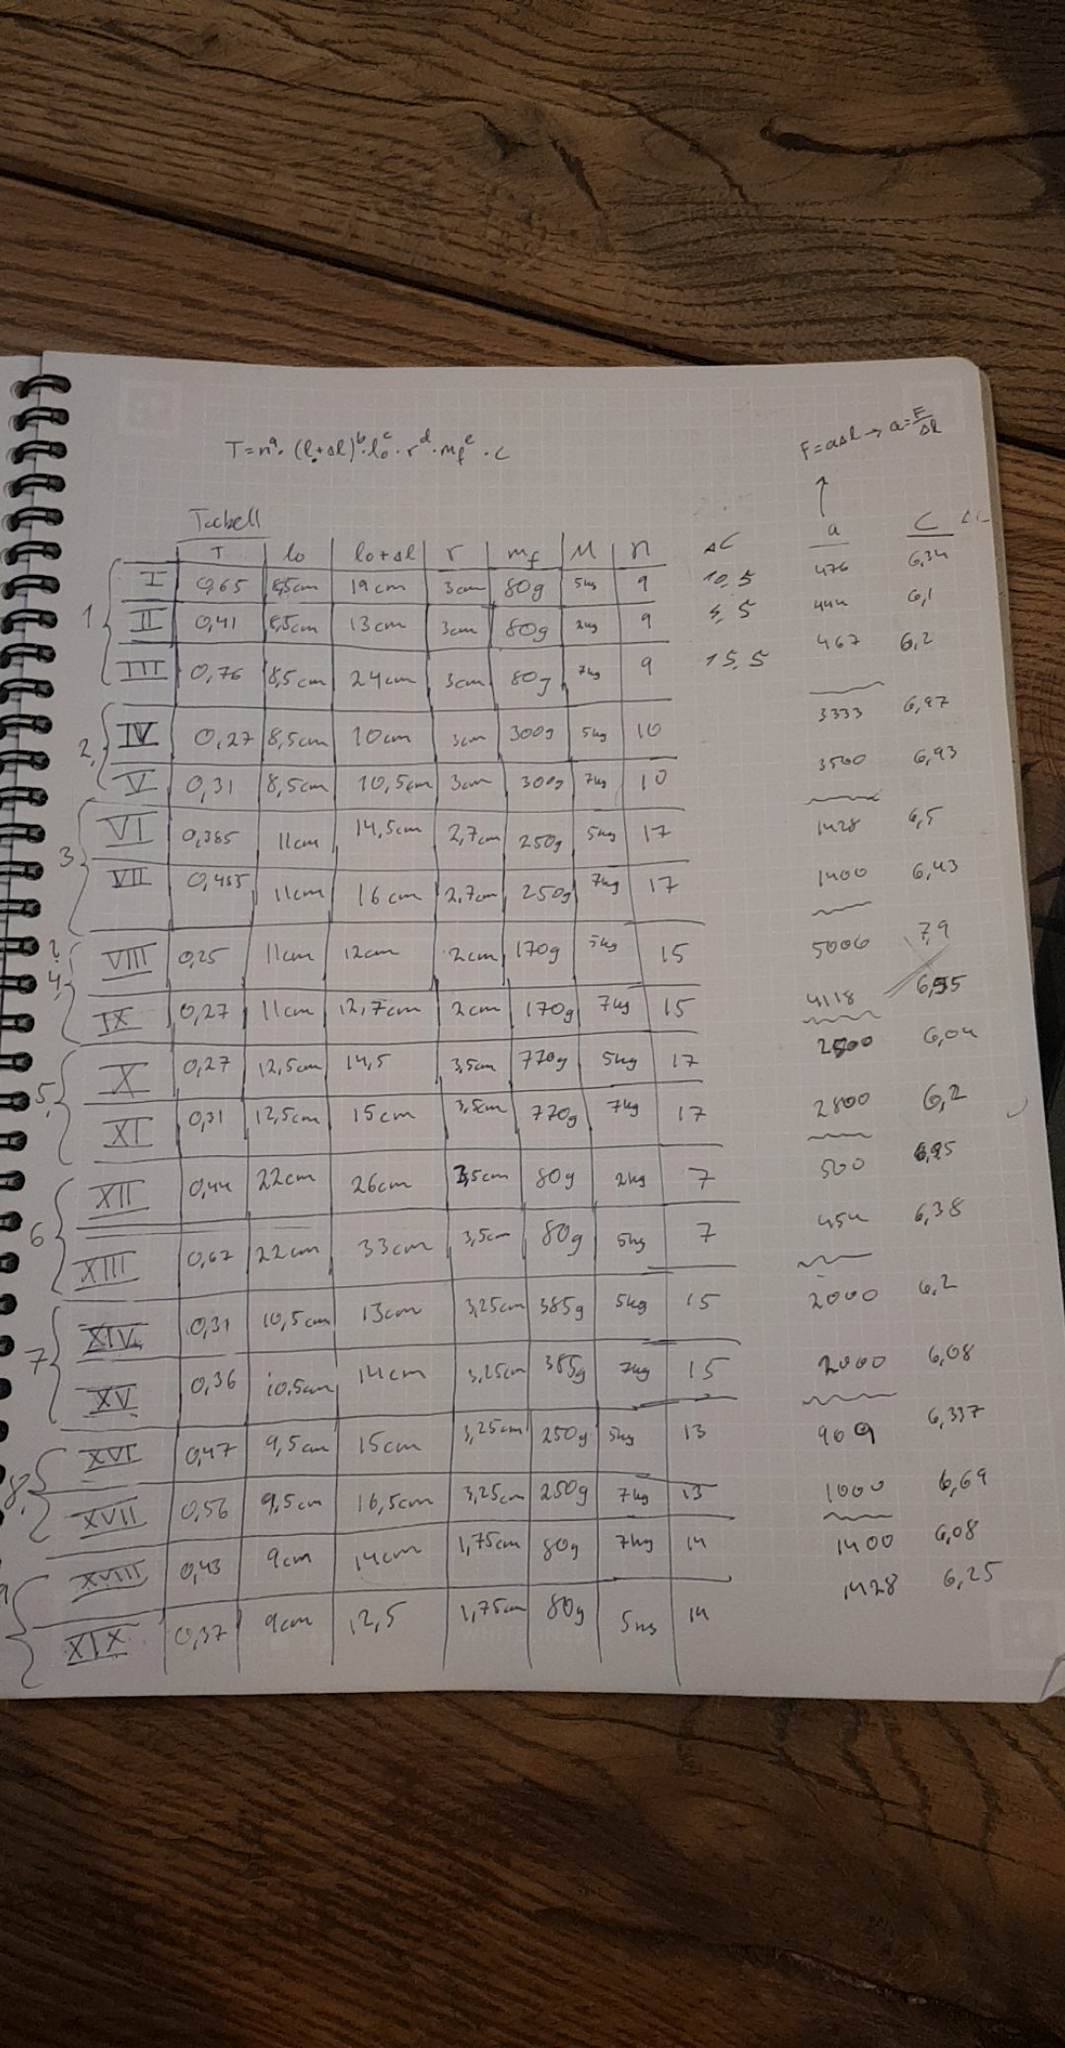 F=aΔl → a=F/Δl
T=nᵃ·(l₀+Δl)ᵇ·l₀ᶜ·rᵈ·m_fᵉ·C
Tabell
T l₀ l₀+Δl r m_f M n Δl a C
1 I 0,65 8,5cm 19cm 3cm 80g 5kg 9 10,5 476 6,34
II 0,41 8,5cm 13cm 3cm 80g 2kg 9 4,5 444 6,1
III 0,76 8,5cm 24cm 3cm 80g 7kg 9 15,5 467 6,2
2. IV 0,27 8,5cm 10cm 3cm 300g 5kg 10 3333 6,97
V 0,31 8,5cm 10,5cm 3cm 300g 7kg 10 3500 6,93
3 VI 0,385 11cm 14,5cm 2,7cm 250g 5kg 17 1428 6,5
VII 0,455 11cm 16cm 2,7cm 250g 7kg 17 1400 6,43
? VIII 0,25 11cm 12cm 2cm 170g 5kg 15 5000 7,9
4. IX 0,27 11cm 12,7cm 2cm 170g 7kg 15 4118 6,95
5. X 0,27 12,5cm 14,5 3,5cm 770g 5kg 17 2500 6,04
XI 0,31 12,5cm 15cm 3,5cm 770g 7kg 17 2800 6,2
6 XII 0,44 22cm 26cm 3,5cm 80g 2kg 7 500
XIII 0,67 22cm 33cm 3,5cm 80g 5kg 7 454 6,38
7 XIV 0,31 10,5cm 13cm 3,25cm 385g 5kg 15 2000 6,2
XV 0,36 10,5cm 14cm 3,25cm 385g 7kg 15 2000 6,08
8. XVI 0,47 9,5cm 15cm 3,25cm 250g 5kg 13 909 6,337
XVII 0,56 9,5cm 16,5cm 3,25cm 250g 7kg 13 1000 6,69
XVIII 0,43 9cm 14cm 1,75cm 80g 7kg 14 1400 6,08
XIX 0,37 9cm 12,5 1,75cm 80g 5kg 14 1428 6,25